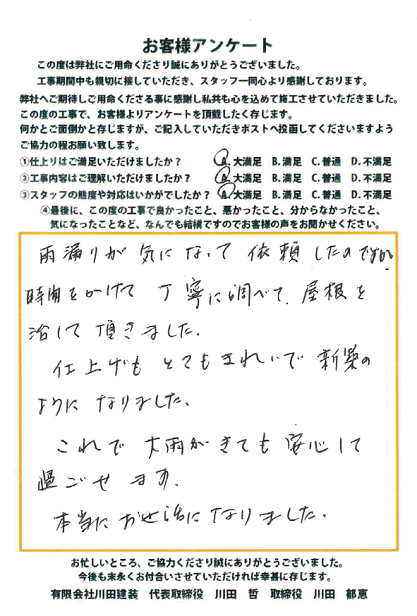 お客様アンケート
この度は弊社にご用命くださり誠にありがとうございました。
工事期間中も親切に接していただき、スタッフ一同心より感謝しております。
弊社へご期待しご用命くださる事に感謝し私共も心を込めて施工させていただきました。
この度の工事で、お客様よりアンケートを頂戴したく存じます。
何かとご面倒かと存じますが、ご記入していただきポストへ投函してくださいますよう
ご協力の程お願い致します。
①仕上りはご満足いただけましたか？ A.大満足 B.満足 C.普通 D.不満足
②工事内容はご理解いただけましたか？ A.大満足 B.満足 C.普通 D.不満足
③スタッフの態度や対応はいかがでしたか？ A.大満足 B.満足 C.普通 D.不満足
④最後に、この度の工事で良かったこと、悪かったこと、分からなかったこと、
気になったことなど、なんでも結構ですのでお客様の声をお聞かせください。
雨漏りが気になって依頼したのですが、
時間をかけて丁寧に調べて、屋根を
治して頂きました。
仕上げもとてもきれいで新築の
ようになりました。
これで大雨がきても安心して
過ごせます。
本当にお世話になりました。
お忙しいところ、ご協力くださり誠にありがとうございました。
今後も末永くお付合いさせていただければ幸甚に存じます。
有限会社川田建装 代表取締役 川田 哲 取締役 川田 郁恵